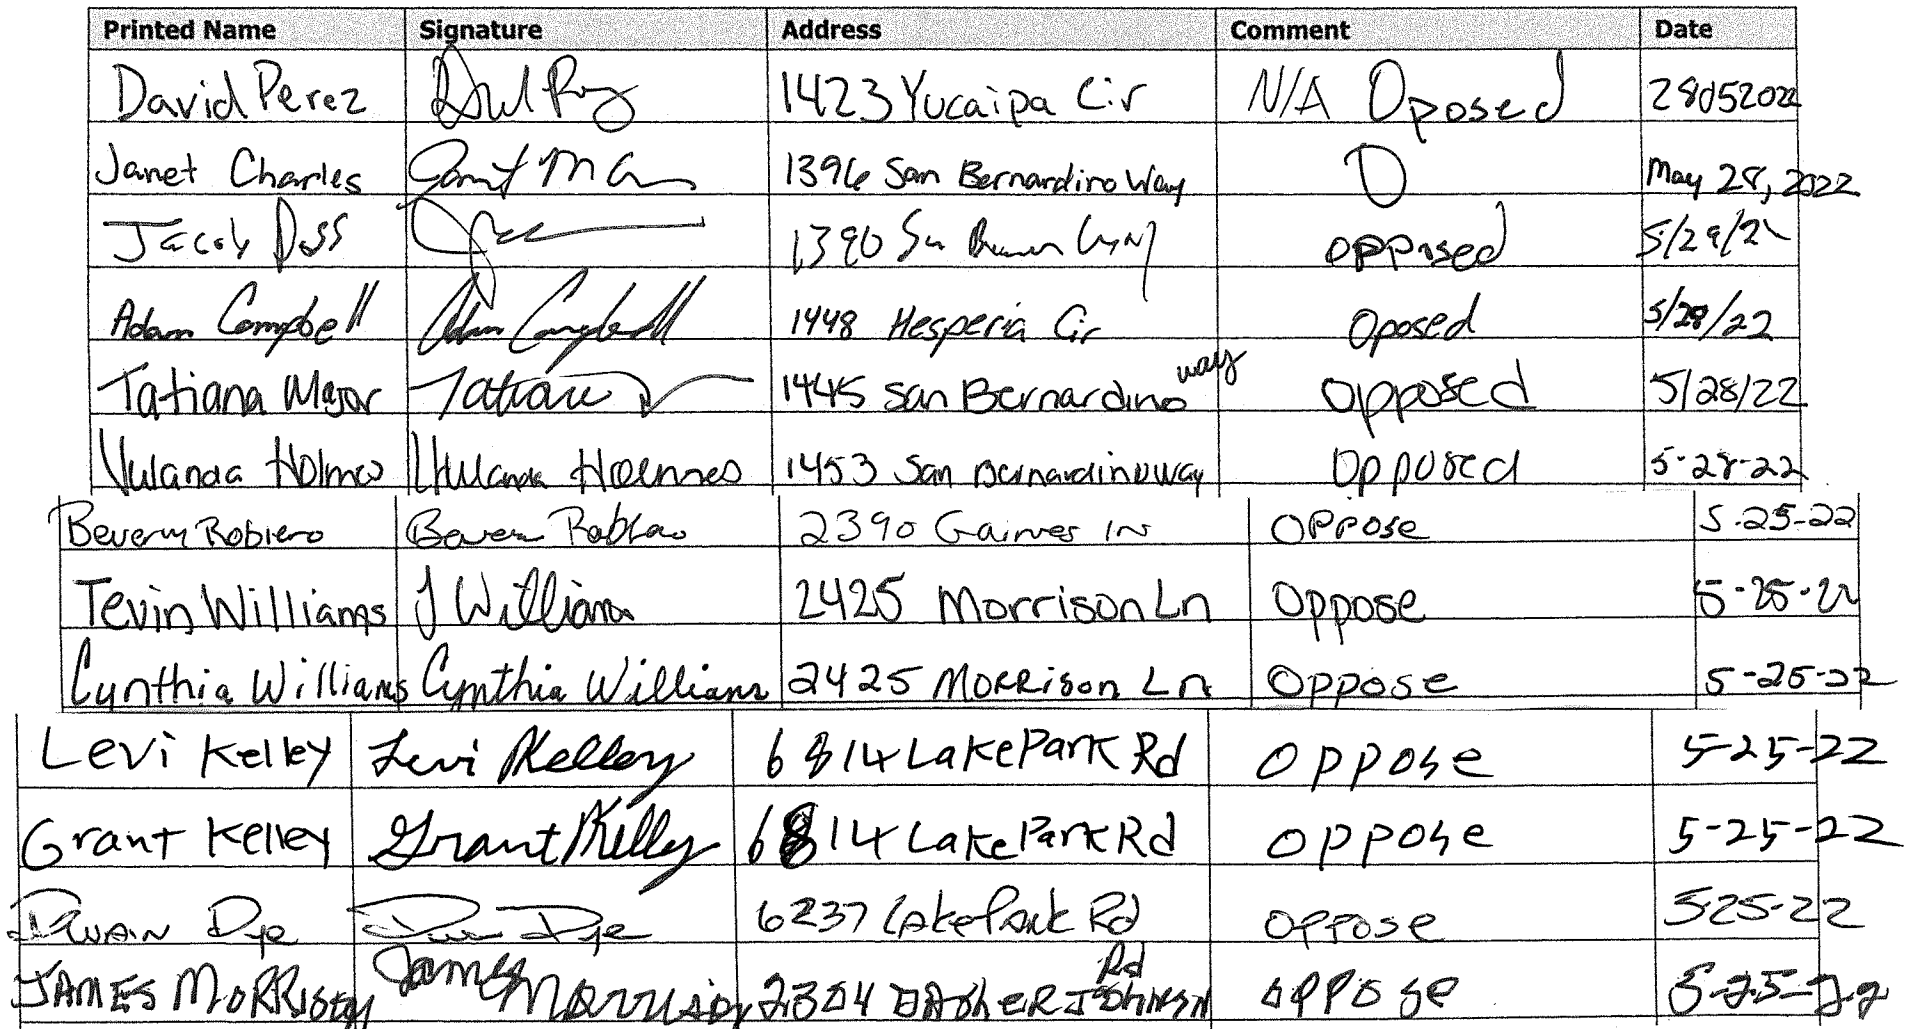 Printed Name Signature Address Comment Date
David Perez 1423 Yucaipa Cir N/A Oposed 28052022
Janet Charles 1396 San Bernardino Way O May 28, 2022
Jacob 1390 San opposed 5/29/22
Adam Campbell Adam Campbell 1448 Hesperia Cir Oposed 5/28/22
Tatiana Major Tatiana 1445 San Bernardino way opposed 5/28/22
Holmes Holmes 1453 San Bernardino way Opposed 5-28-22
Robiero 2390 Gaines ln Oppose 5-25-22
Tevin Williams T Williams 2425 Morrison Ln Oppose 5-25-22
Cynthia Williams Cynthia Williams 2425 Morrison Ln Oppose 5-25-22
Levi Kelley Levi Kelley 6814 Lake Park Rd oppose 5-25-22
Grant Kelley Grant Kelley 6814 Lake Park Rd oppose 5-25-22
Dwain Dye Dye 6237 Lake Park Rd oppose 525-22
JAMES MORRISON James Morrison 2304 Johnson Rd oppose 5-25-22